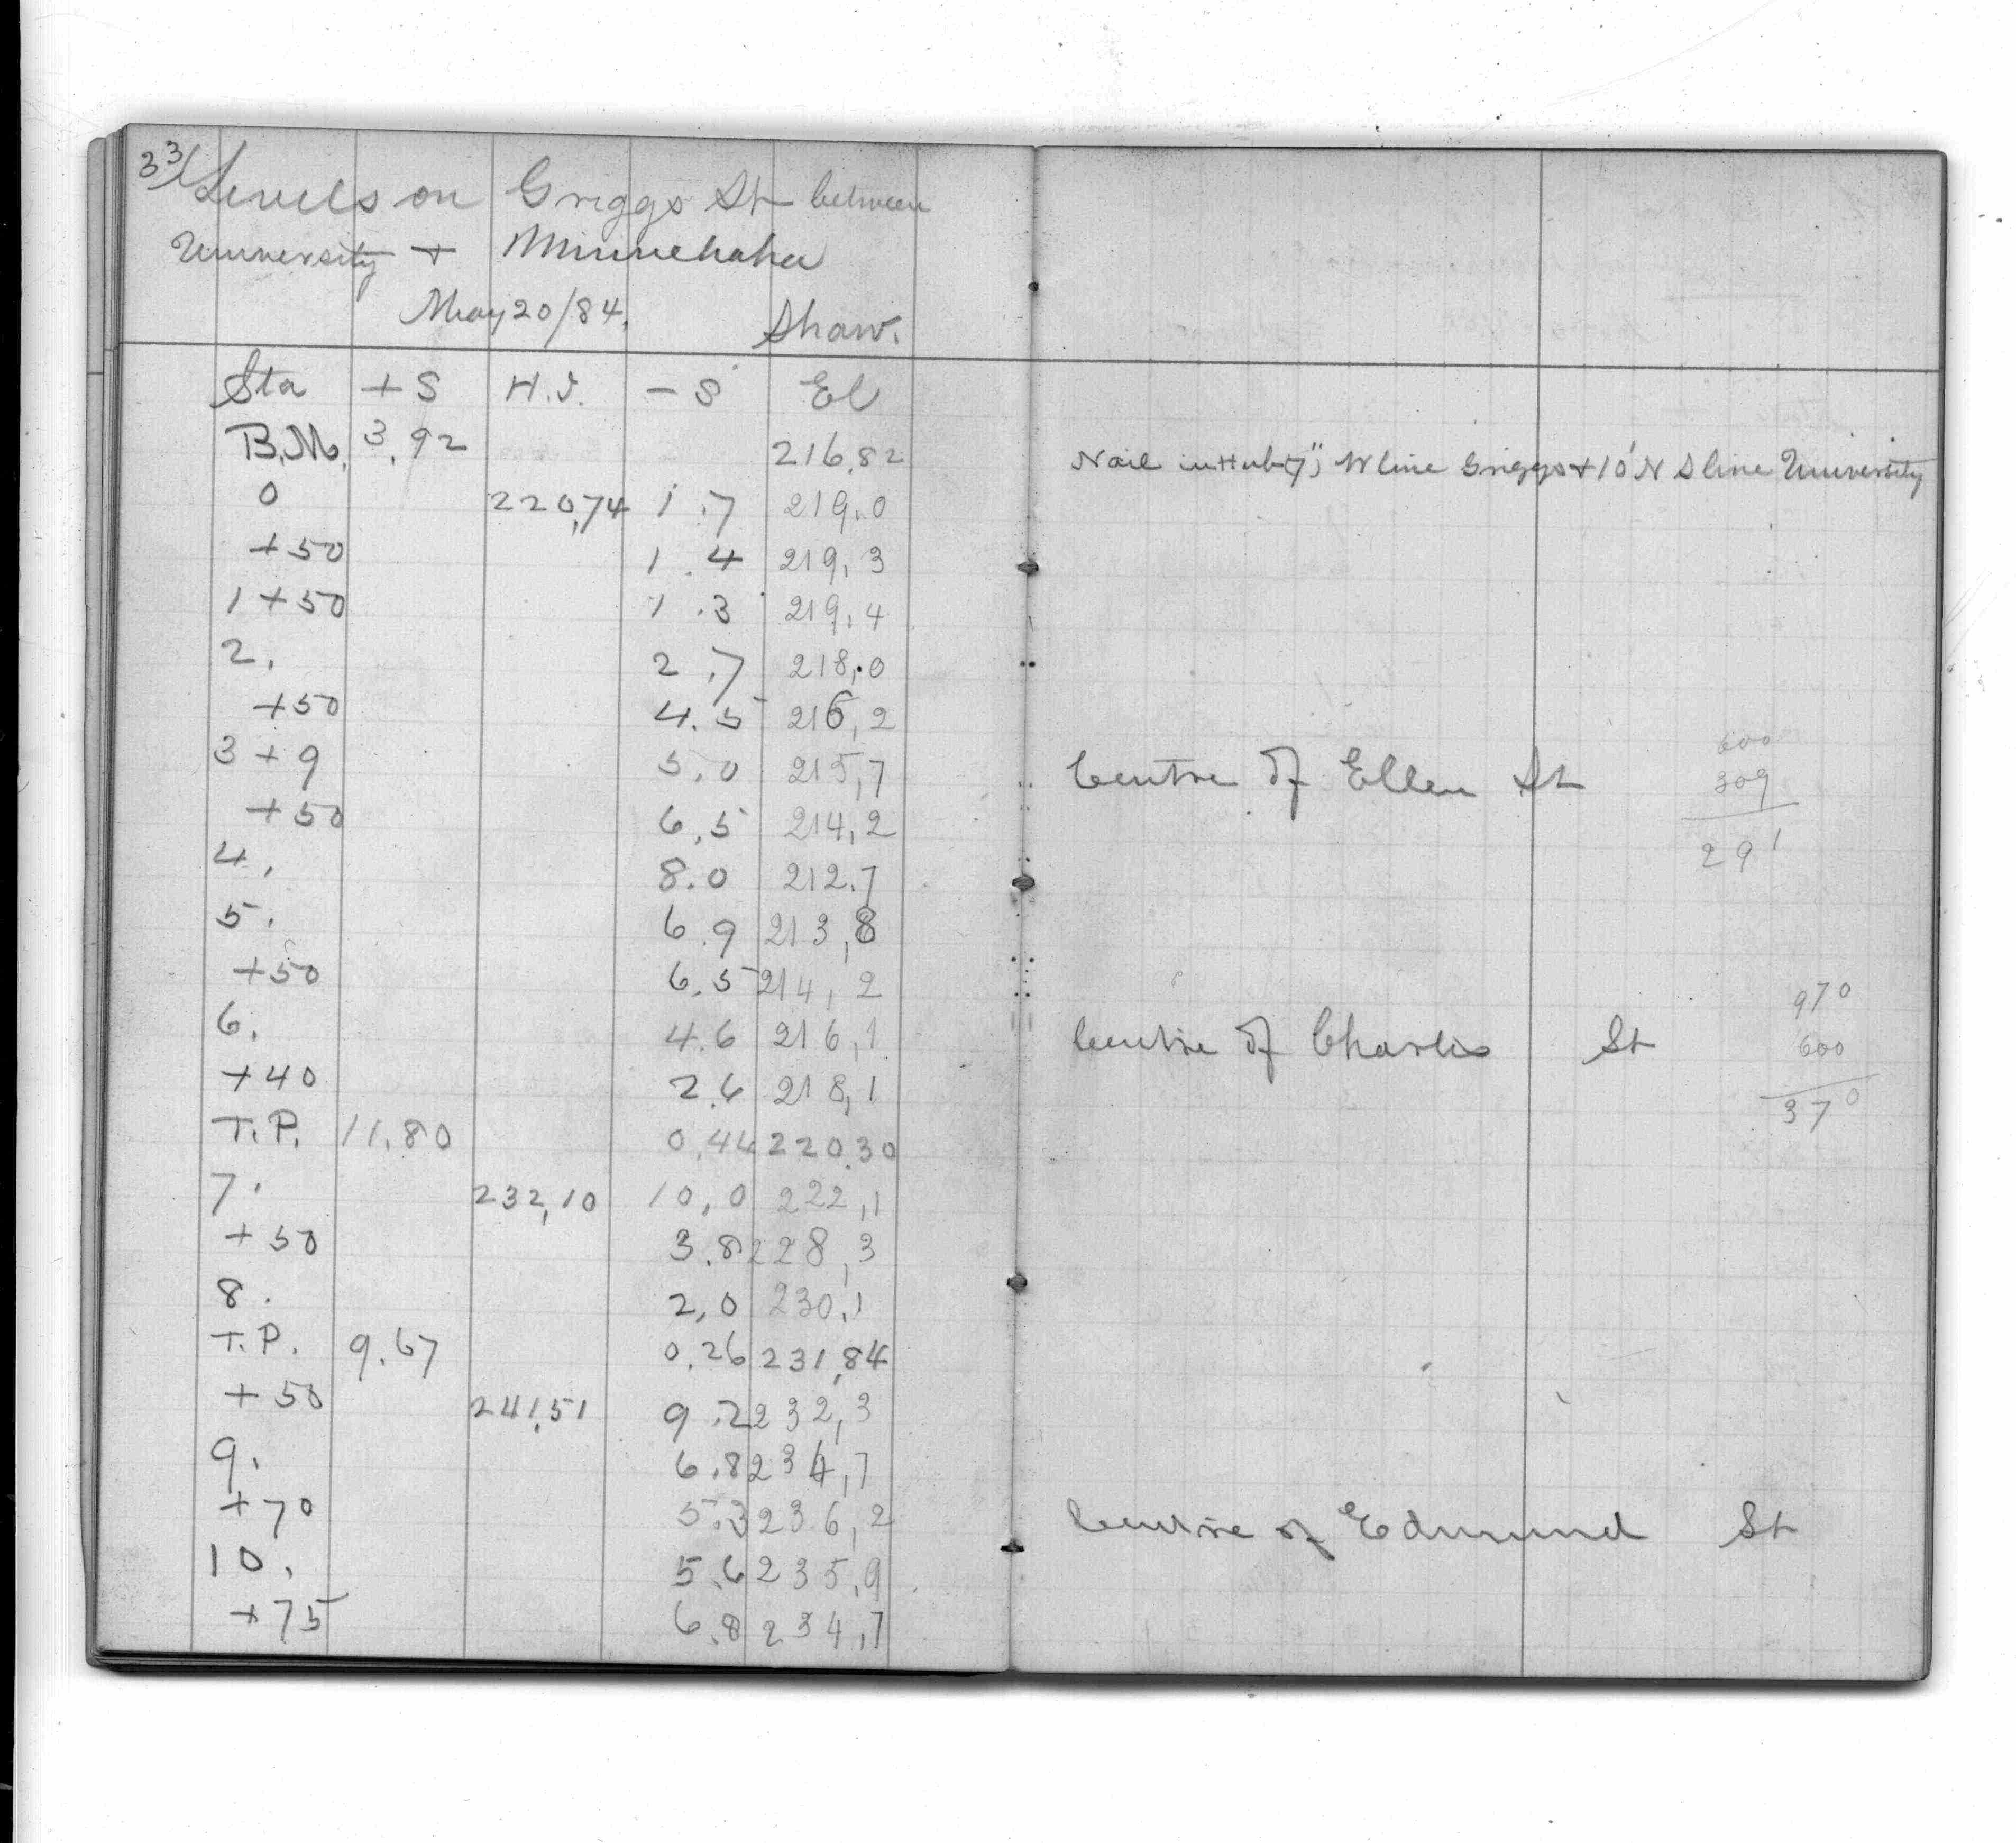 33
Levels on Griggs St between
University + Minnehaha
May 20/84. Shaw.
Sta +S H.I. -S El
B.M. 3.92 216.82 Nail in Hub W line Griggs + 10' N S line University
0 220.74 1.7 219.0
+50 1.4 219.3
1+50 1.3 219.4
2. 2.7 218.0
+50 4.5 216.2
3+9 5.0 215.7 Centre of Ellen St
+50 6.5 214.2
4. 8.0 212.7
5. 6.9 213.8
+50 6.5 214.2
6. 4.6 216.1 Centre of Charles St
+40 2.6 218.1
T.P. 11.80 0.44 220.30
7. 232.10 10.0 222.1
+50 3.8 228.3
8. 2.0 230.1
T.P. 9.67 0.26 231.84
+50 241.51 9.2 232.3
9. 6.8 234.7
+70 5.3 236.2 Centre of Edmund St
10. 5.6 235.9
+75 6.8 234.7
600
309
291
970
600
370